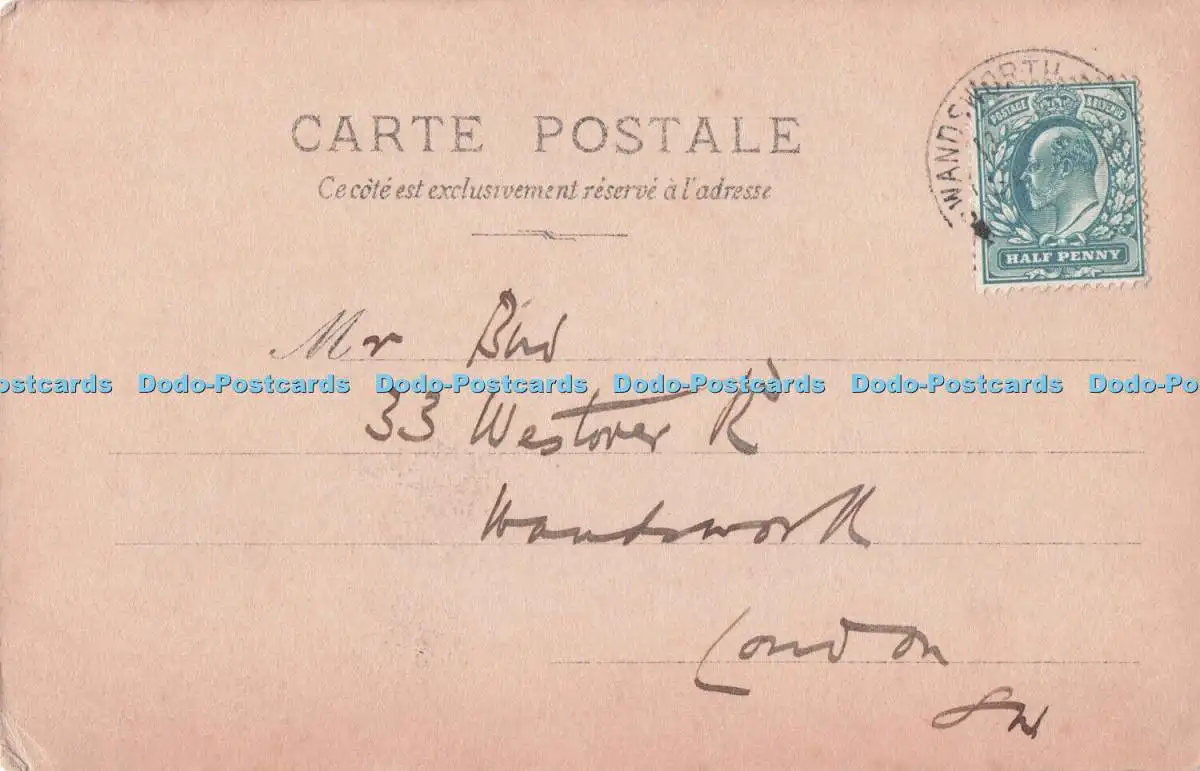 WANDSWORTH
CARTE POSTALE
POSTAGE REVENUE
Ce côté est exclusivement réservé à l'adresse
HALF PENNY
Mr Bird
ostcards Dodo-Postcards Dodo-Postcards Dodo-Postcards Dodo-Postcards Dodo-Po
33 Westover Rd
Wandsworth
London
SW